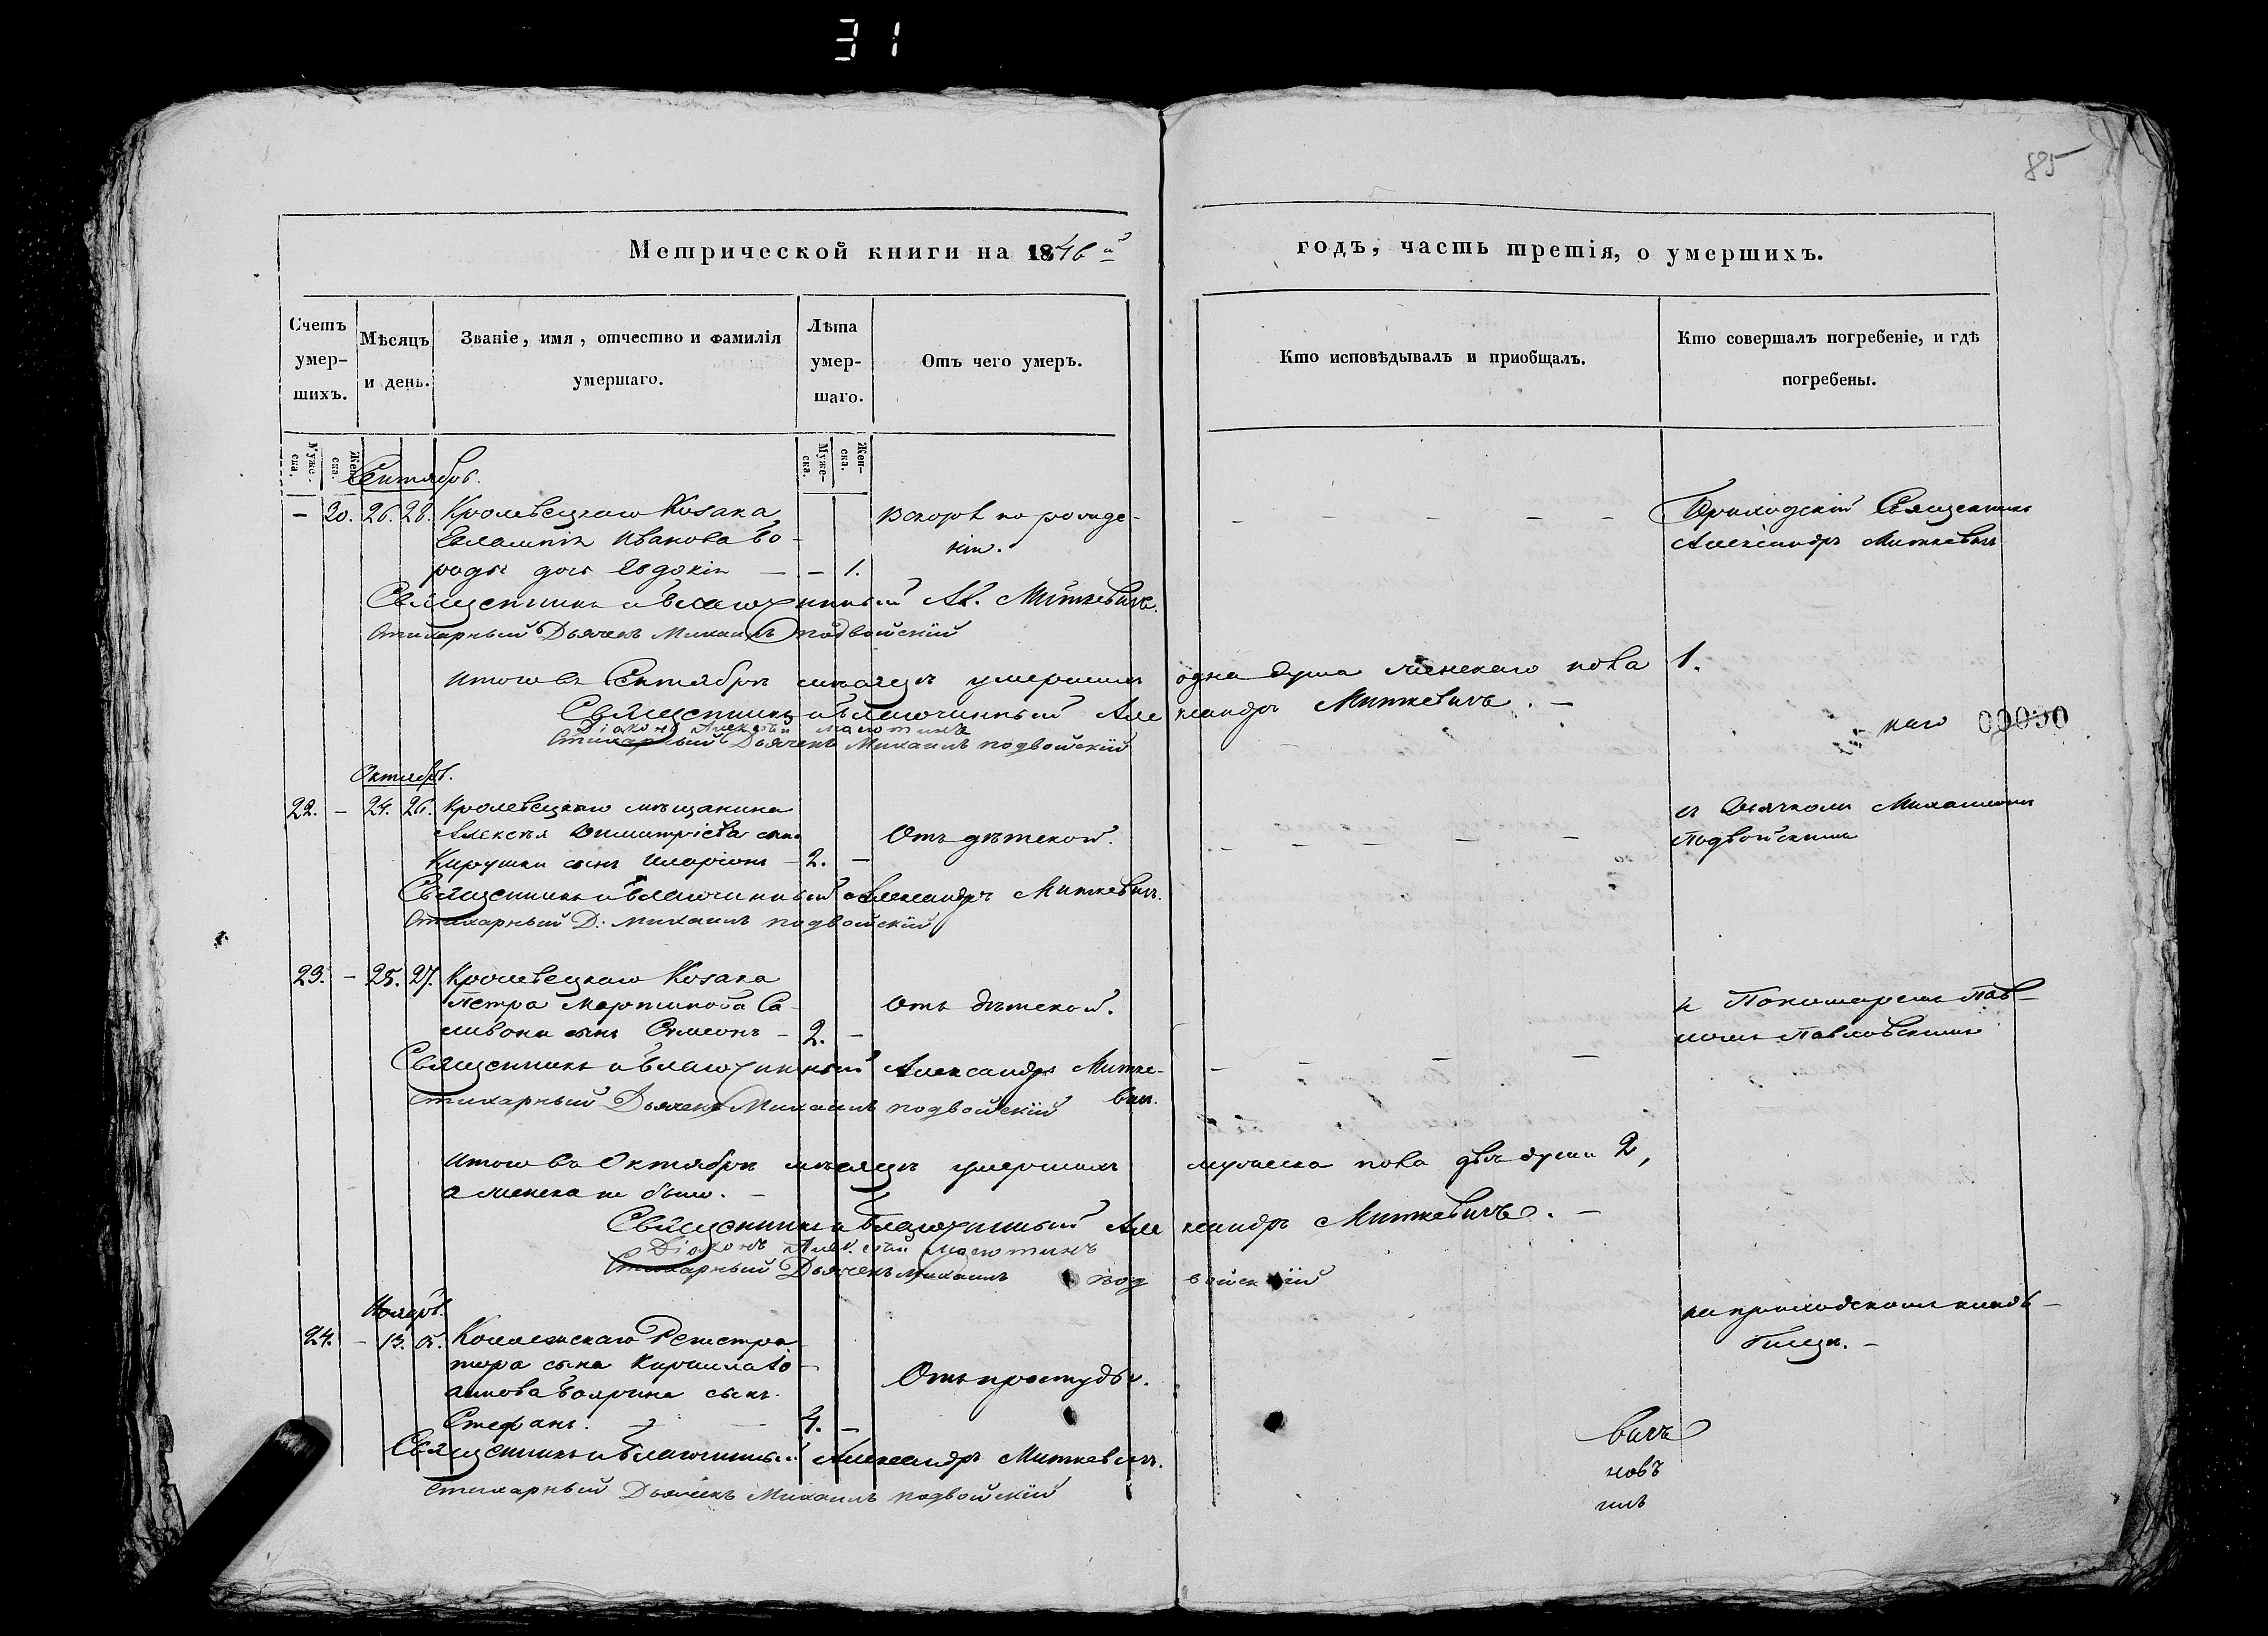 31
85
Метрической книги на 1846й годъ, часть третія, о умершихъ.
Счетъ умер-шихъ.
Мѣсяцъ и день.
Званіе, имя, отчество и фамилія умершаго.
Лѣта умер-шаго.
Отъ чего умеръ.
Кто исповѣдывалъ и пріобщалъ.
Кто совершалъ погребеніе, и гдѣ погребены.
Муже-ска. Жен-ска.
Муже-ска. Жен-ска.
Сентябрь.
— 20. 26. 28. Кролевецкаго Козака
Евлампія Иванова Бо-
роды дочь Евдокія — — 1.
Вскорѣ по рожде-
ніи.
Приходскій Священникъ
Александръ Миткевичъ
Священникъ и Благочинный Ал. Миткевичъ.
Стихарный Дьячекъ Михаилъ Подвойскій
Итого въ Сентябрѣ мѣсяцѣ умершихъ одна душа женскаго пола 1.
Священникъ и Благочинный Александръ Миткевичъ. —
Діаконъ Алексѣй
Стихарный Дьячекъ Михаилъ Подвойскій
00090
Октябрь.
22. — 24. 26. Кролевецкаго мѣщанина
Алексѣя Димитріева сына
Кирушки сынъ Иларіонъ — 2. —
Отъ дѣтской.
съ Дьячкомъ Михаиломъ
Подвойскимъ
Священникъ и Благочинный Александръ Миткевичъ.
Стихарный Д: Михаилъ Подвойскій
23. — 25. 27. Кролевецкаго Козака
Петра Мартинова Са-
ливона сынъ Симеонъ — 2. —
Отъ дѣтской.
и Пономаремъ Пав-
ломъ Павловскимъ
Священникъ и Благочинный Александръ Митке-
вич.
Стихарный Дьячекъ Михаилъ Подвойскій
Итого въ Октябрѣ мѣсяцѣ умершихъ мужеска пола двѣ души 2,
а женска не было. —
Священникъ и Благочинный Александръ Миткевичъ. —
Діаконъ Алек.сѣй
Стихарный Дьячекъ Михаилъ Подвойскій
Ноябрь.
24. — 13. 15. Коллежскаго Регистра-
тора сына Кирилла Іо-
аннова Боярина сынъ
Стефанъ. — 4. —
Отъ простуды.
на приходскомъ кладь-
бищѣ. —
Священникъ и Благочинный Александръ Миткевичъ.
Стихарный Дьячекъ Михаилъ Подвойскій
вичъ
новъ